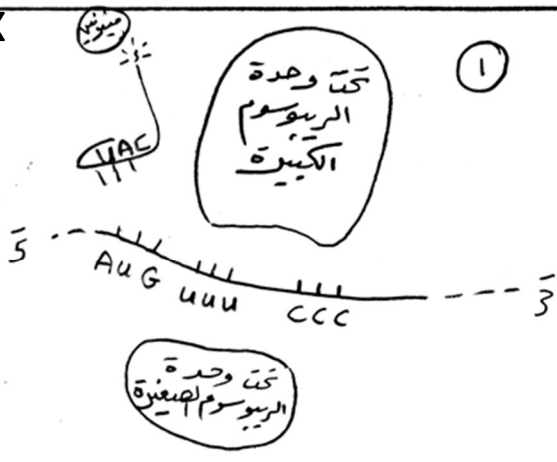 ميثيونين
١
تحت وحدة
الريبوسوم
الكبيرة
UAC
5̄ 3̄
AUG UUU CCC
تحت وحدة
الريبوسوم الصغيرة